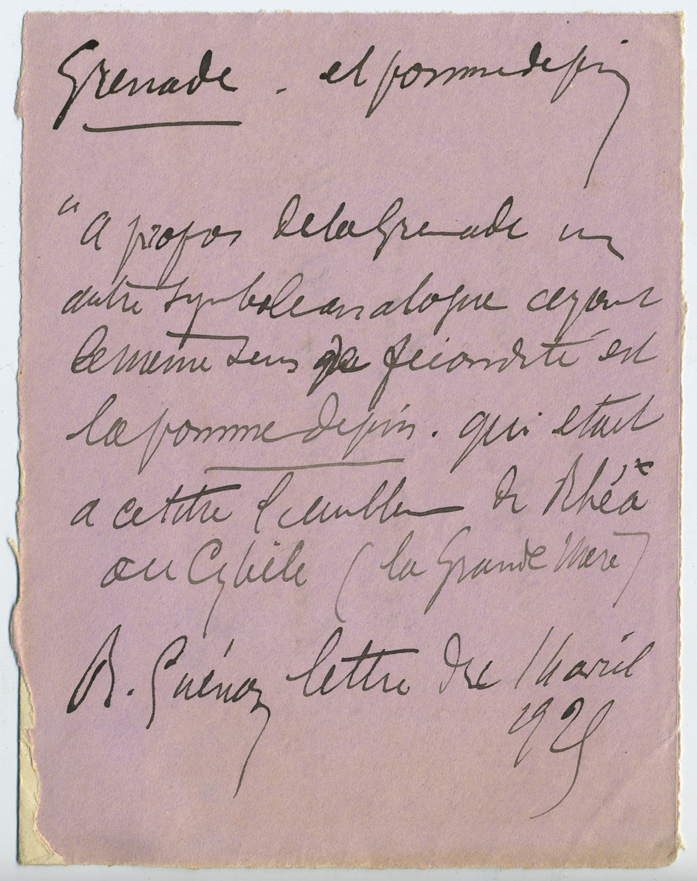 Grenade . et pomme de pin
"A propos de la Grenade un
autre symbole analogue ayant
le même sens de fécondité est
la pomme de pin. qui était
a ce titre l'emblème de Rhéa x
ou Cybèle (la Grande Mère)
R. Guénon lettre du avril
1925